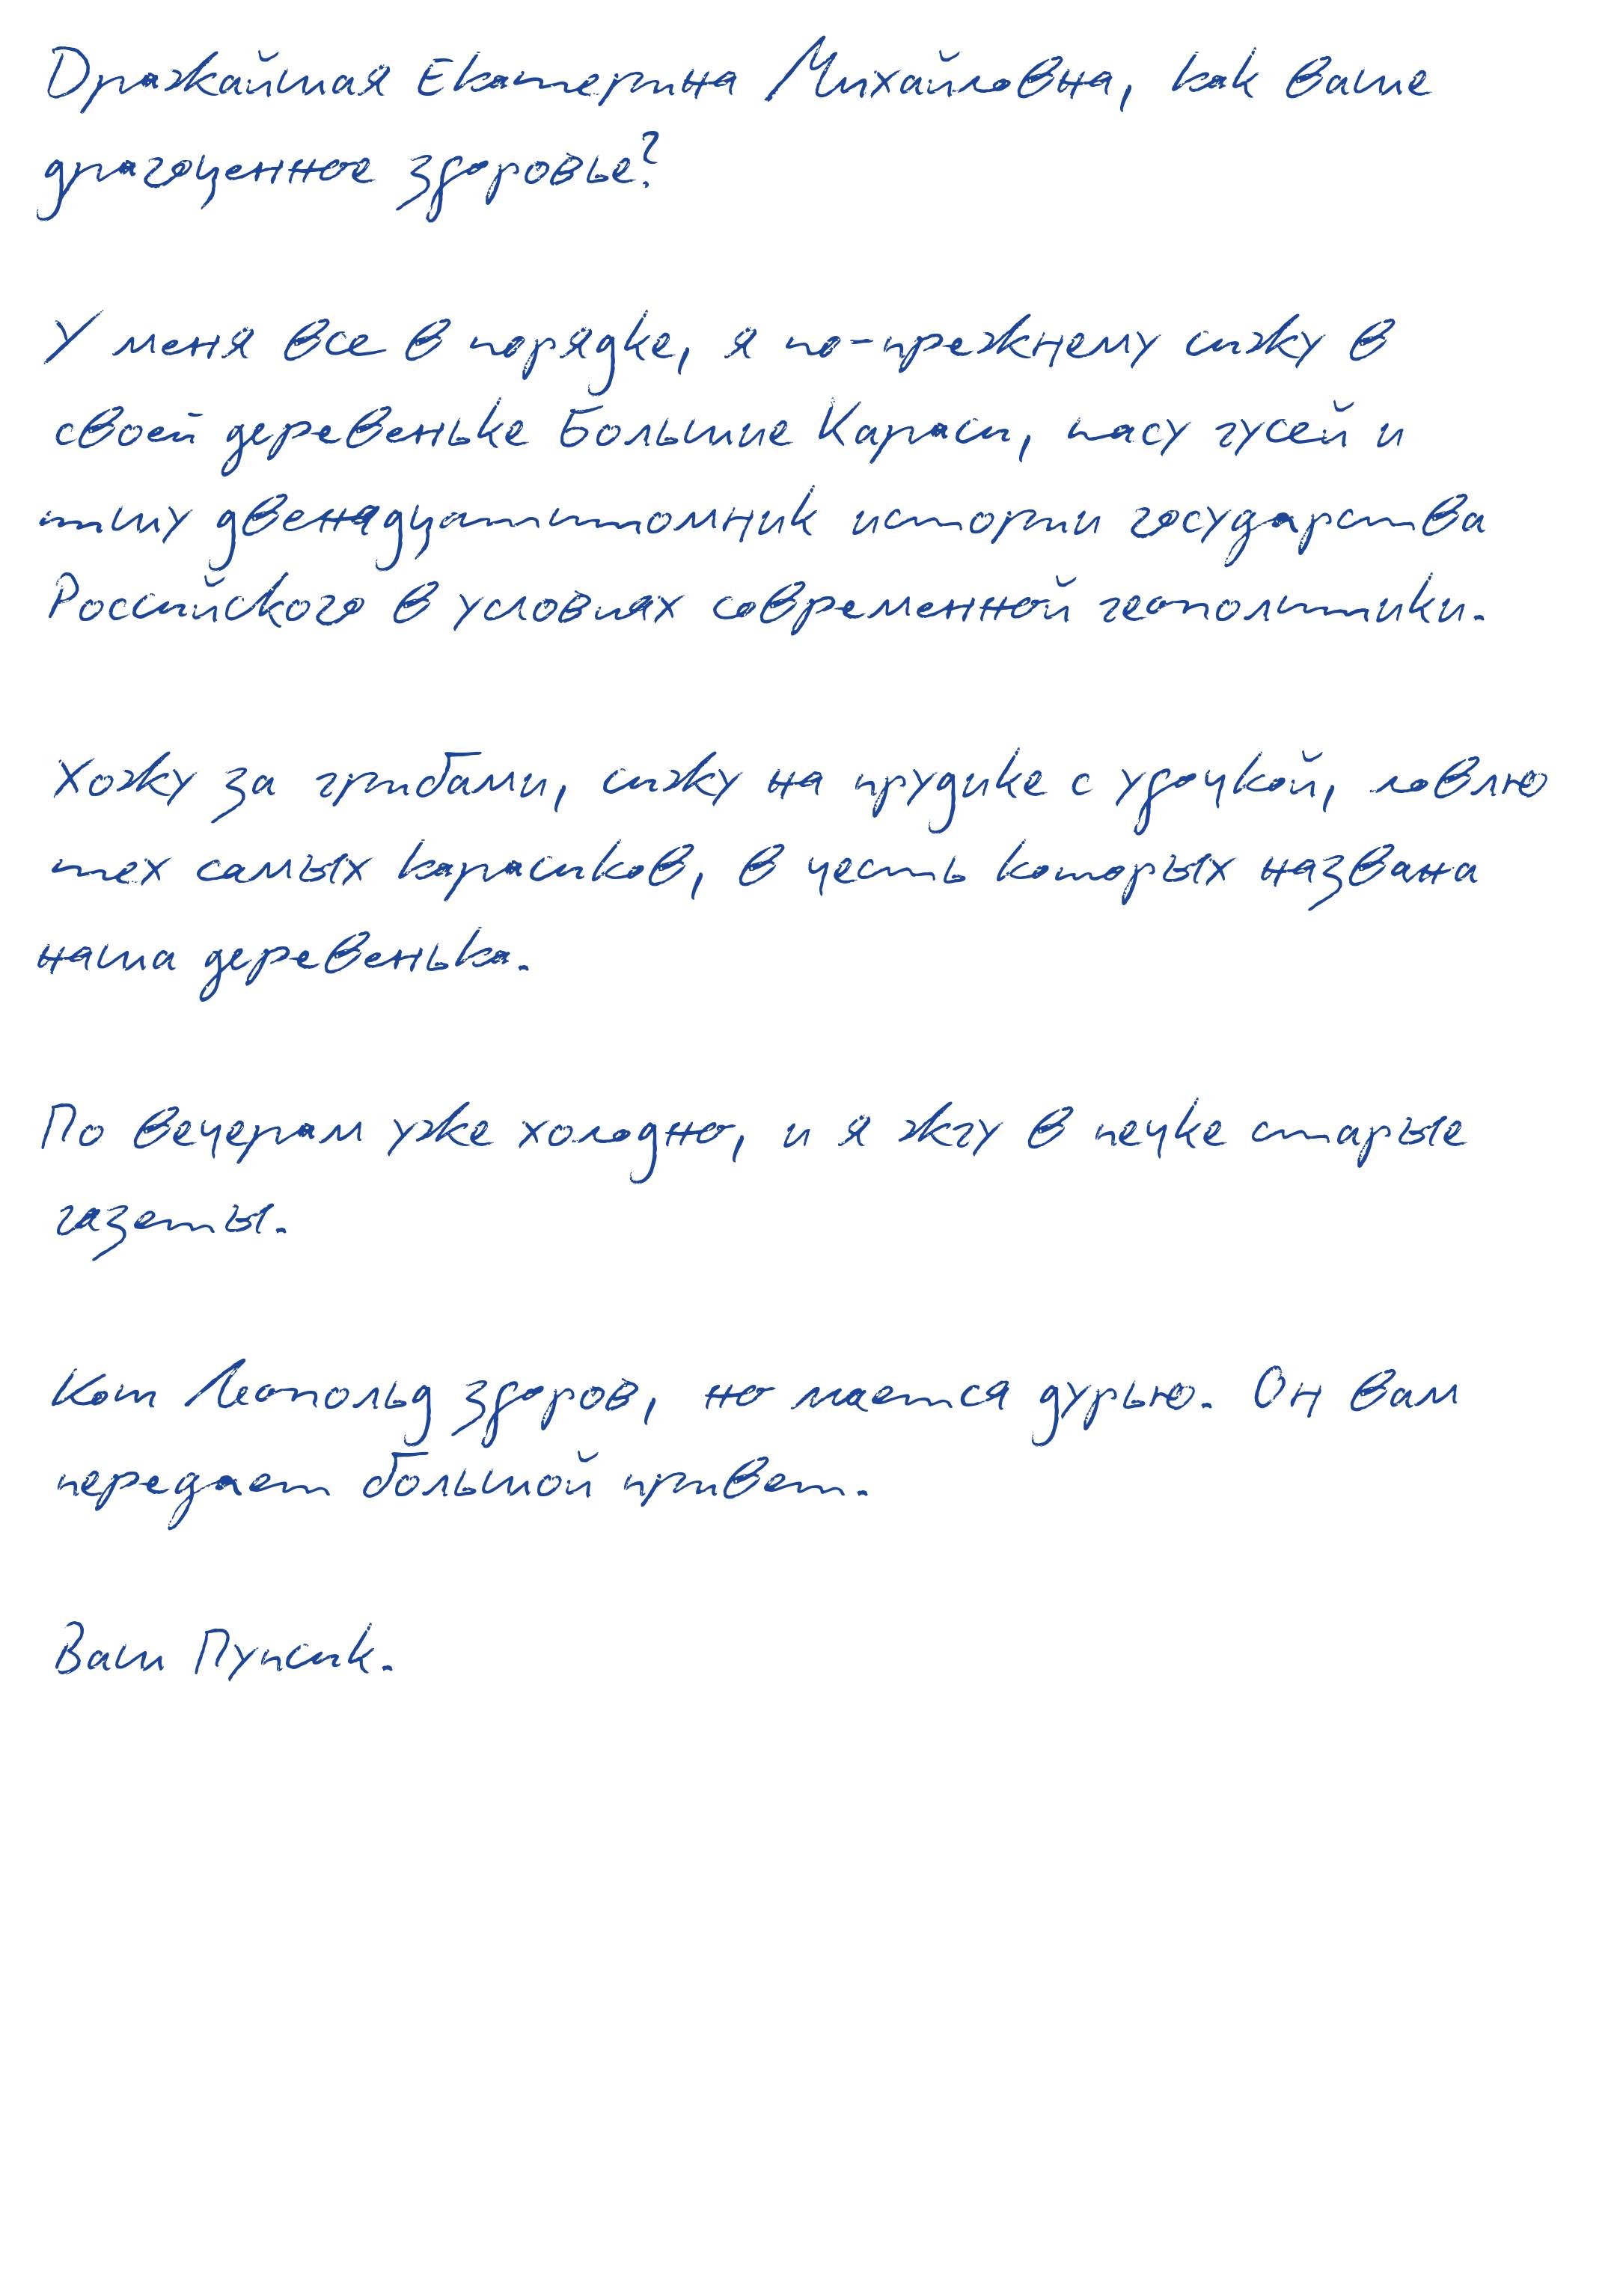 Дражайшая Екатерина Михайловна, как ваше
драгоценное здоровье?
У меня все в порядке, я по-прежнему сижу в
своей деревеньке Большие Караси, пасу гусей и
пишу двенадцатитомник истории государства
Российского в условиях современной геополитики.
Хожу за грибами, сижу на прудике с удочкой, ловлю
тех самых карасиков, в честь которых названа
наша деревенька.
По вечерам уже холодно, и я жгу в печке старые
газеты.
Кот Леопольд здоров, но мается дурью. Он вам
передает большой привет.
Ваш Пупсик.